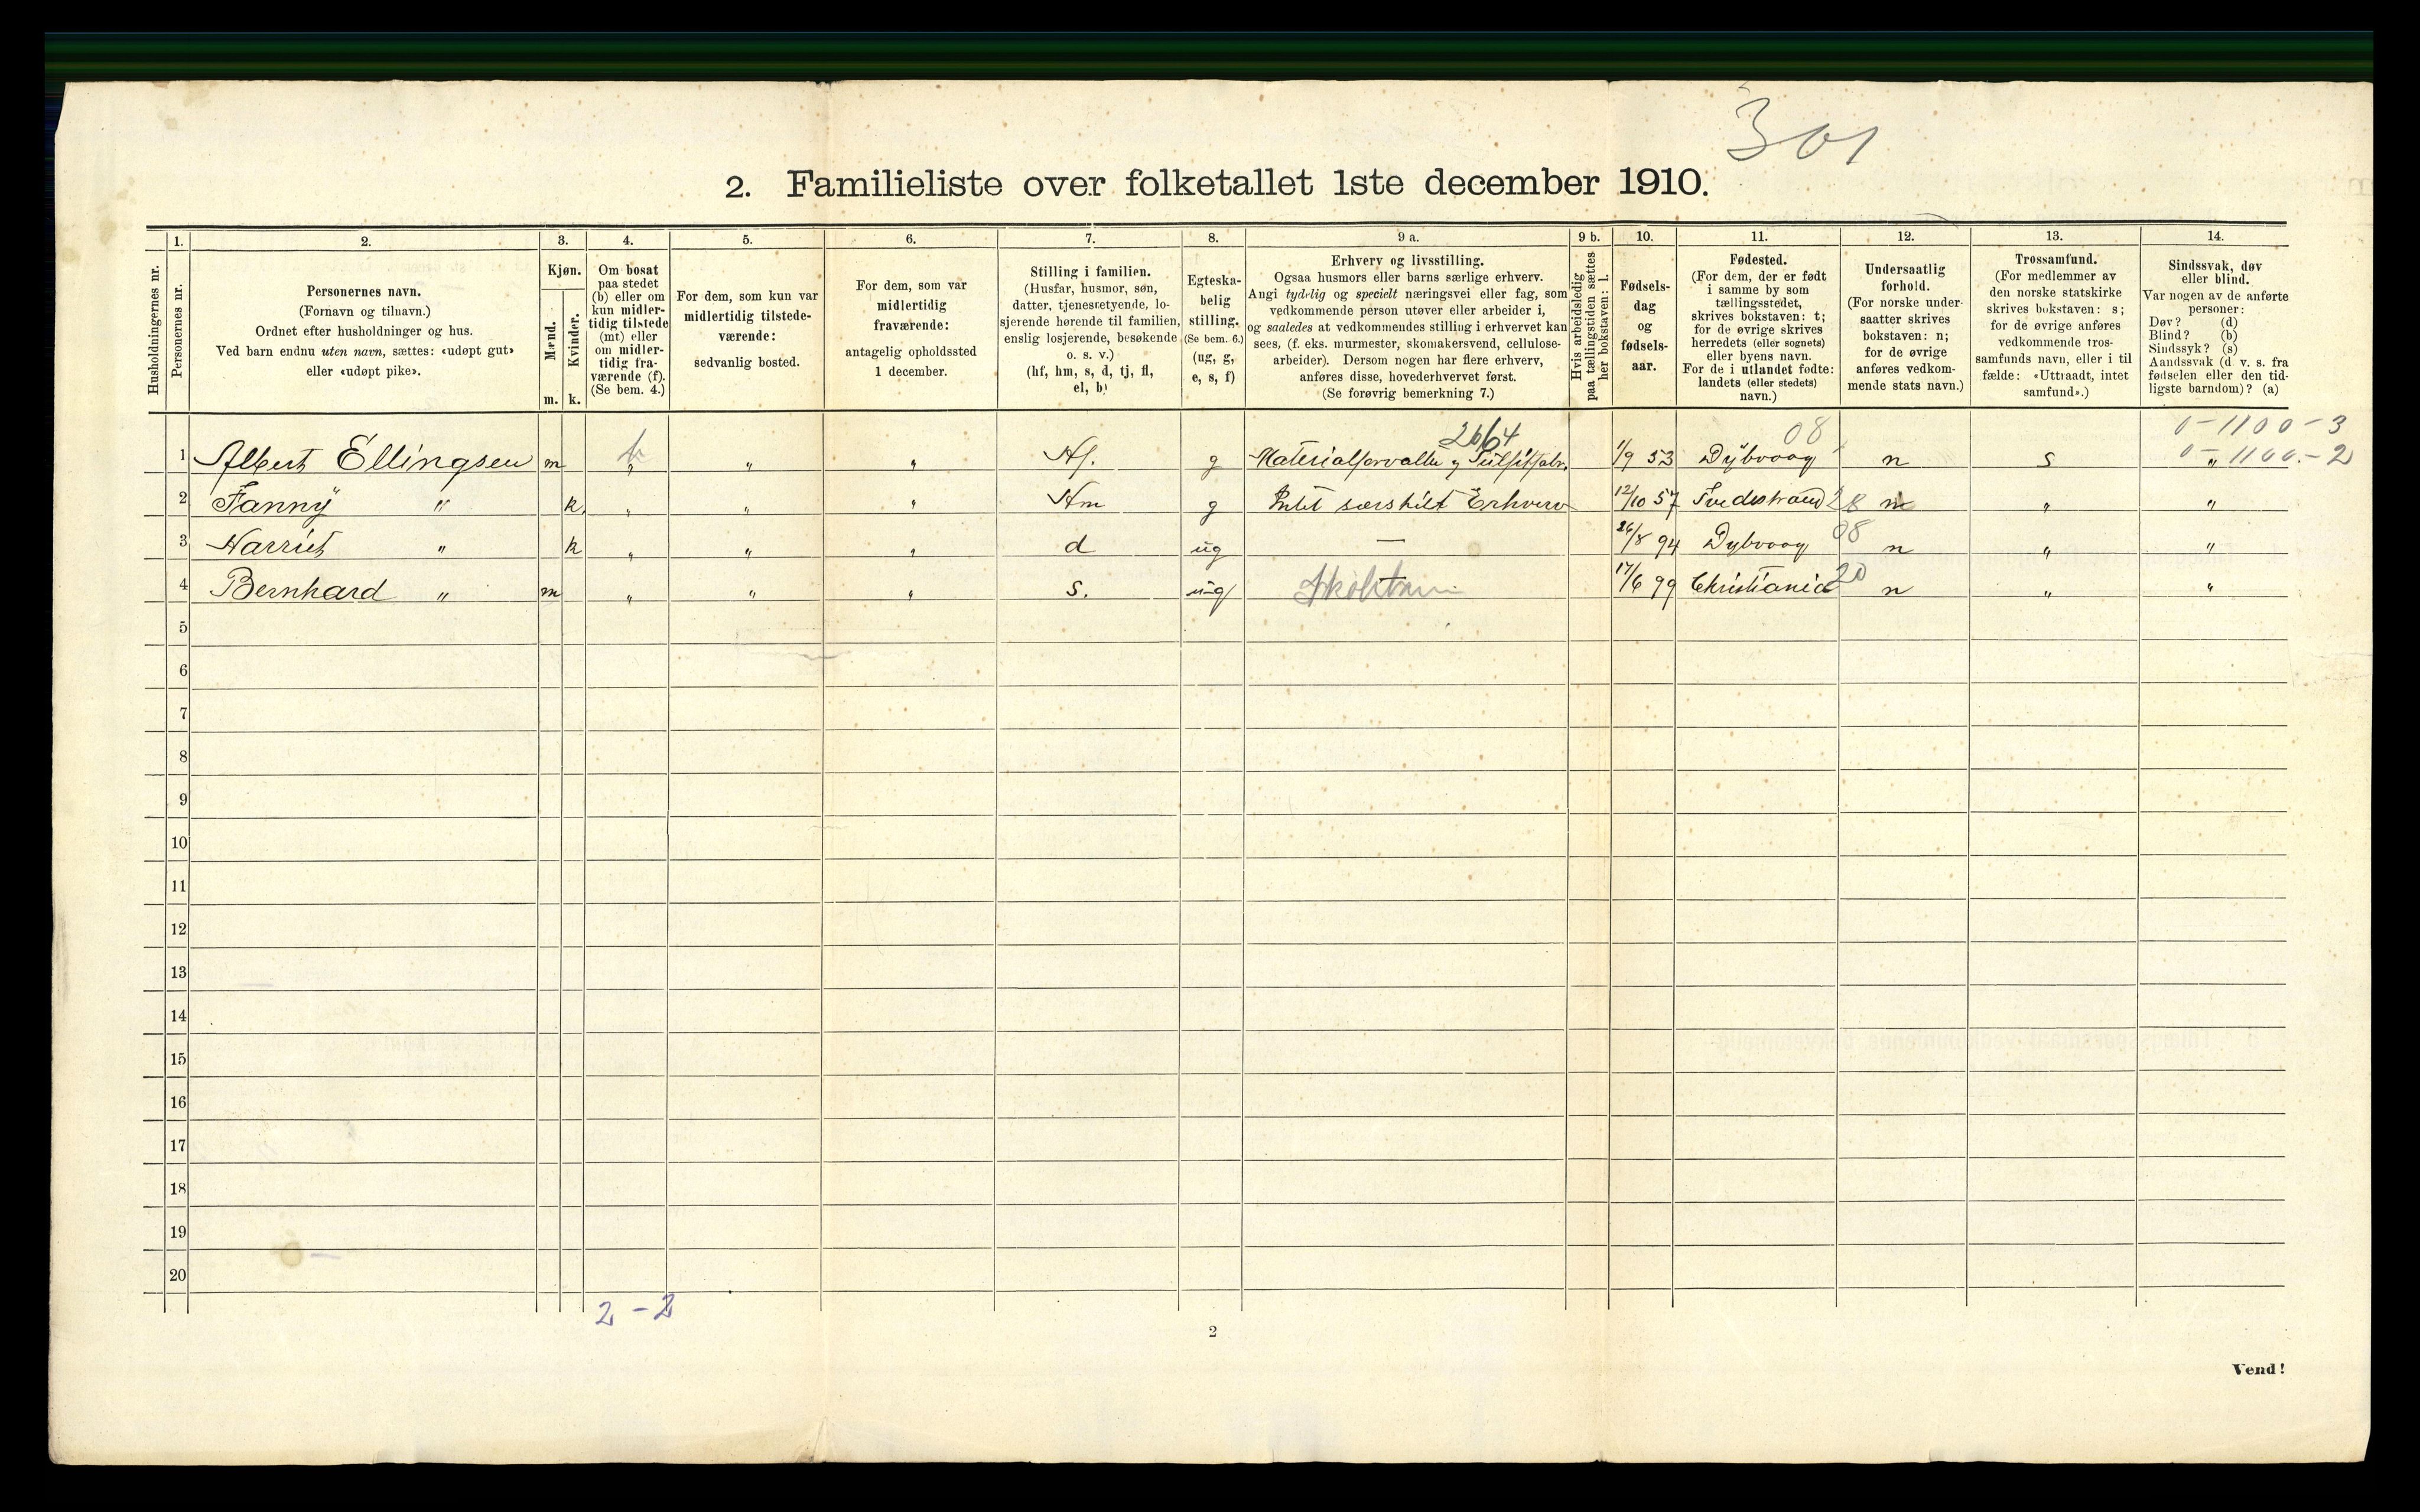 301
2. Familieliste over folketallet 1ste december 1910.
Husholdningernes nr.
1.
Personernes nr.
2.
Personernes navn.
(Fornavn og tilnavn.)
Ordnet efter husholdninger og hus.
Ved barn endnu uten navn, sættes: «udøpt gut»
eller «udøpt pike».
3.
Kjøn.
Mænd.
Kvinder.
m. k.
4.
Om bosat
paa stedet
(b) eller om
kun midler-
tidig tilstede
(mt) eller
om midler-
tidig fra-
værende (f).
(Se bem. 4.)
5.
For dem, som kun var
midlertidig tilstede-
værende:
sedvanlig bosted.
6.
For dem, som var
midlertidig
fraværende:
antagelig opholdssted
1 december.
7.
Stilling i familien.
(Husfar, husmor, søn,
datter, tjenestetyende, lo-
sjerende hørende til familien,
enslig losjerende, besøkende
o. s. v.)
(hf, hm, s, d, tj, fl,
el, b)
8.
Egteska-
belig
stilling.
(Se bem. 6.)
(ug, g,
e, s, f)
9 a.
Erhverv og livsstilling.
Ogsaa husmors eller barns særlige erhverv.
Angi tydelig og specielt næringsvei eller fag, som
vedkommende person utøver eller arbeider i,
og saaledes at vedkommendes stilling i erhvervet kan
sees, (f. eks. murmester, skomakersvend, cellulose-
arbeider). Dersom nogen har flere erhverv,
anføres disse, hovederhvervet først.
(Se forøvrig bemerkning 7.)
9 b.
Hvis arbeidsledig
paa tællingstiden sættes
her bokstaven: l.
10.
Fødsels-
dag
og
fødsels-
aar.
11.
Fødested.
(For dem, der er født
i samme by som
tællingsstedet,
skrives bokstaven: t;
for de øvrige skrives
herredets (eller sognets)
eller byens navn.
For de i utlandet fødte:
landets (eller stedets)
navn.)
12.
Undersaatlig
forhold.
(For norske under-
saatter skrives
bokstaven: n;
for de øvrige
anføres vedkom-
mende stats navn.)
13.
Trossamfund.
(For medlemmer av
den norske statskirke
skrives bokstaven: s;
for de øvrige anføres
vedkommende tros-
samfunds navn, eller i til
fælde: «Uttraadt, intet
samfund».)
14.
Sindssvak, døv
eller blind.
Var nogen av de anførte
personer:
Døv? (d)
Blind? (b)
Sindssyk? (s)
Aandssvak (d. v. s. fra
fødselen eller den tid-
ligste barndom)? (a)
2664 08 0-1100-3
1 Albert Ellingsen m b " " " Hf. g Materialforvalter Sulfitfabr. 1/9 53 Dybvaag n s " 0-1100.-2
2 Fanny " k. " " " Hm g Intet særskilt Erhverv 12/10 57 Tvedestrand 28 n " "
3 Harriet " k " " " d ug — 26/8 94 Dybvaag 08 n " "
4 Bernhard " m " " " s. ug — 17/6 99 Christiania 20 n " "
5
6
7
8
9
10
11
12
13
14
15
16
17
18
19
20
2 - 2
2
Vend!